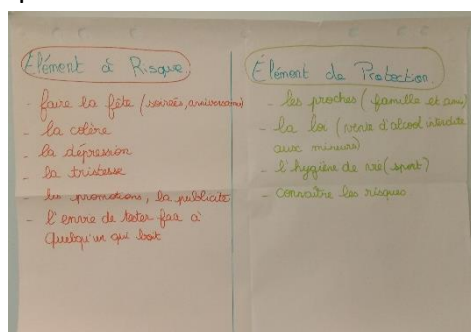 Elément à Risque
- faire la fête (soirées, anniversaires)
- la colère
- la dépression
- la tristesse
- les promotions, la publicité
- l'envie de tester face à
quelqu'un qui boit
Elément de Protection
- les proches (famille et amis)
- la loi (vente d'alcool interdite
aux mineurs)
- l'hygiène de vie (sport)
- connaître les risques